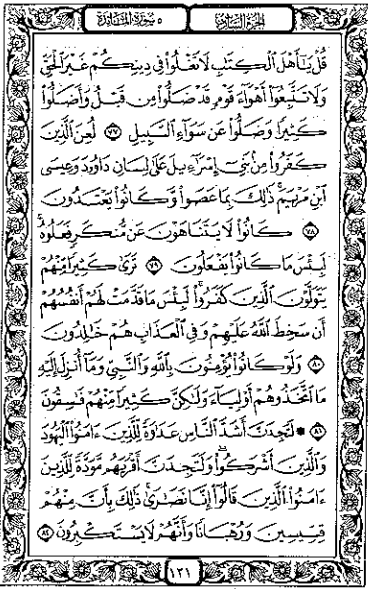 الجزء السادس
٥ سورة المائدة
قُلْ يَٰٓأَهْلَ ٱلْكِتَٰبِ لَا تَغْلُوا۟ فِى دِينِكُمْ غَيْرَ ٱلْحَقِّ
وَلَا تَتَّبِعُوٓا۟ أَهْوَآءَ قَوْمٍ قَدْ ضَلُّوا۟ مِن قَبْلُ وَأَضَلُّوا۟
كَثِيرًا وَضَلُّوا۟ عَن سَوَآءِ ٱلسَّبِيلِ ٧٧ لُعِنَ ٱلَّذِينَ
كَفَرُوا۟ مِنۢ بَنِىٓ إِسْرَٰٓءِيلَ عَلَىٰ لِسَانِ دَاوُۥدَ وَعِيسَى
ٱبْنِ مَرْيَمَ ذَٰلِكَ بِمَا عَصَوا۟ وَّكَانُوا۟ يَعْتَدُونَ
٧٨ كَانُوا۟ لَا يَتَنَاهَوْنَ عَن مُّنكَرٍ فَعَلُوهُ
لَبِئْسَ مَا كَانُوا۟ يَفْعَلُونَ ٧٩ تَرَىٰ كَثِيرًا مِّنْهُمْ
يَتَوَلَّوْنَ ٱلَّذِينَ كَفَرُوا۟ لَبِئْسَ مَا قَدَّمَتْ لَهُمْ أَنفُسُهُمْ
أَن سَخِطَ ٱللَّهُ عَلَيْهِمْ وَفِى ٱلْعَذَابِ هُمْ خَٰلِدُونَ
٨٠ وَلَوْ كَانُوا۟ يُؤْمِنُونَ بِٱللَّهِ وَٱلنَّبِىِّ وَمَآ أُنزِلَ إِلَيْهِ
مَا ٱتَّخَذُوهُمْ أَوْلِيَآءَ وَلَٰكِنَّ كَثِيرًا مِّنْهُمْ فَٰسِقُونَ
٨١ * لَتَجِدَنَّ أَشَدَّ ٱلنَّاسِ عَدَٰوَةً لِّلَّذِينَ ءَامَنُوا۟ ٱلْيَهُودَ
وَٱلَّذِينَ أَشْرَكُوا۟ وَلَتَجِدَنَّ أَقْرَبَهُم مَّوَدَّةً لِّلَّذِينَ
ءَامَنُوا۟ ٱلَّذِينَ قَالُوٓا۟ إِنَّا نَصَٰرَىٰ ذَٰلِكَ بِأَنَّ مِنْهُمْ
قِسِّيسِينَ وَرُهْبَانًا وَأَنَّهُمْ لَا يَسْتَكْبِرُونَ ٨٢
١٢١